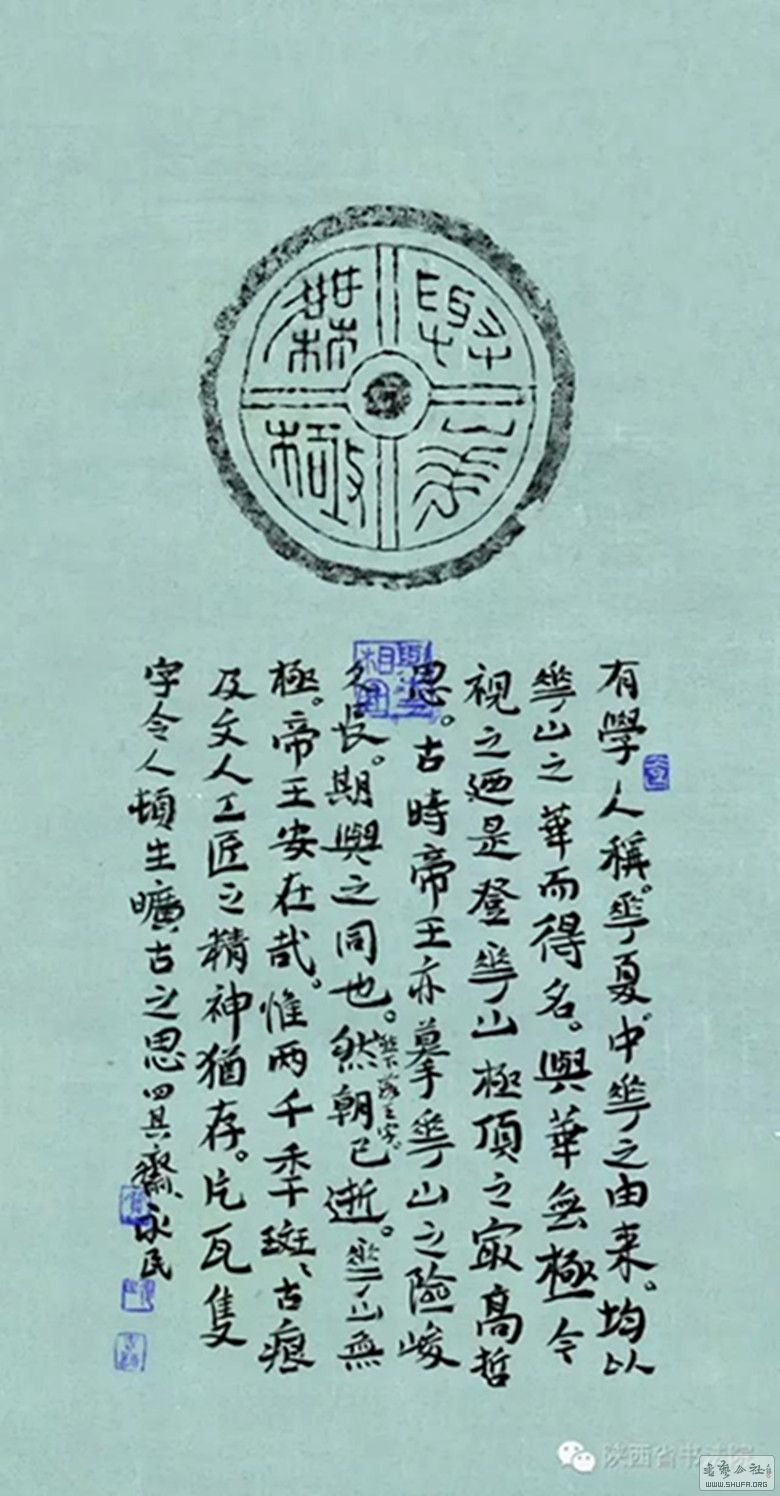 與華無極
有學人稱。華夏。中華之由来。均以
華山之華而得名。與華無極令
視之廼是登華山極頂之最高哲
思。古時帝王亦摹華山之險峻
久長。期與之同也。然朝已逝。華山無
然下落王字。
極。帝王安在哉。惟兩千季斑、古痕
及文人工匠之精神猶存。片瓦隻
字令人頓生曠古之思四其齋、永民
陕西省书法院
書藝公社
WWW.SHUFA.ORG